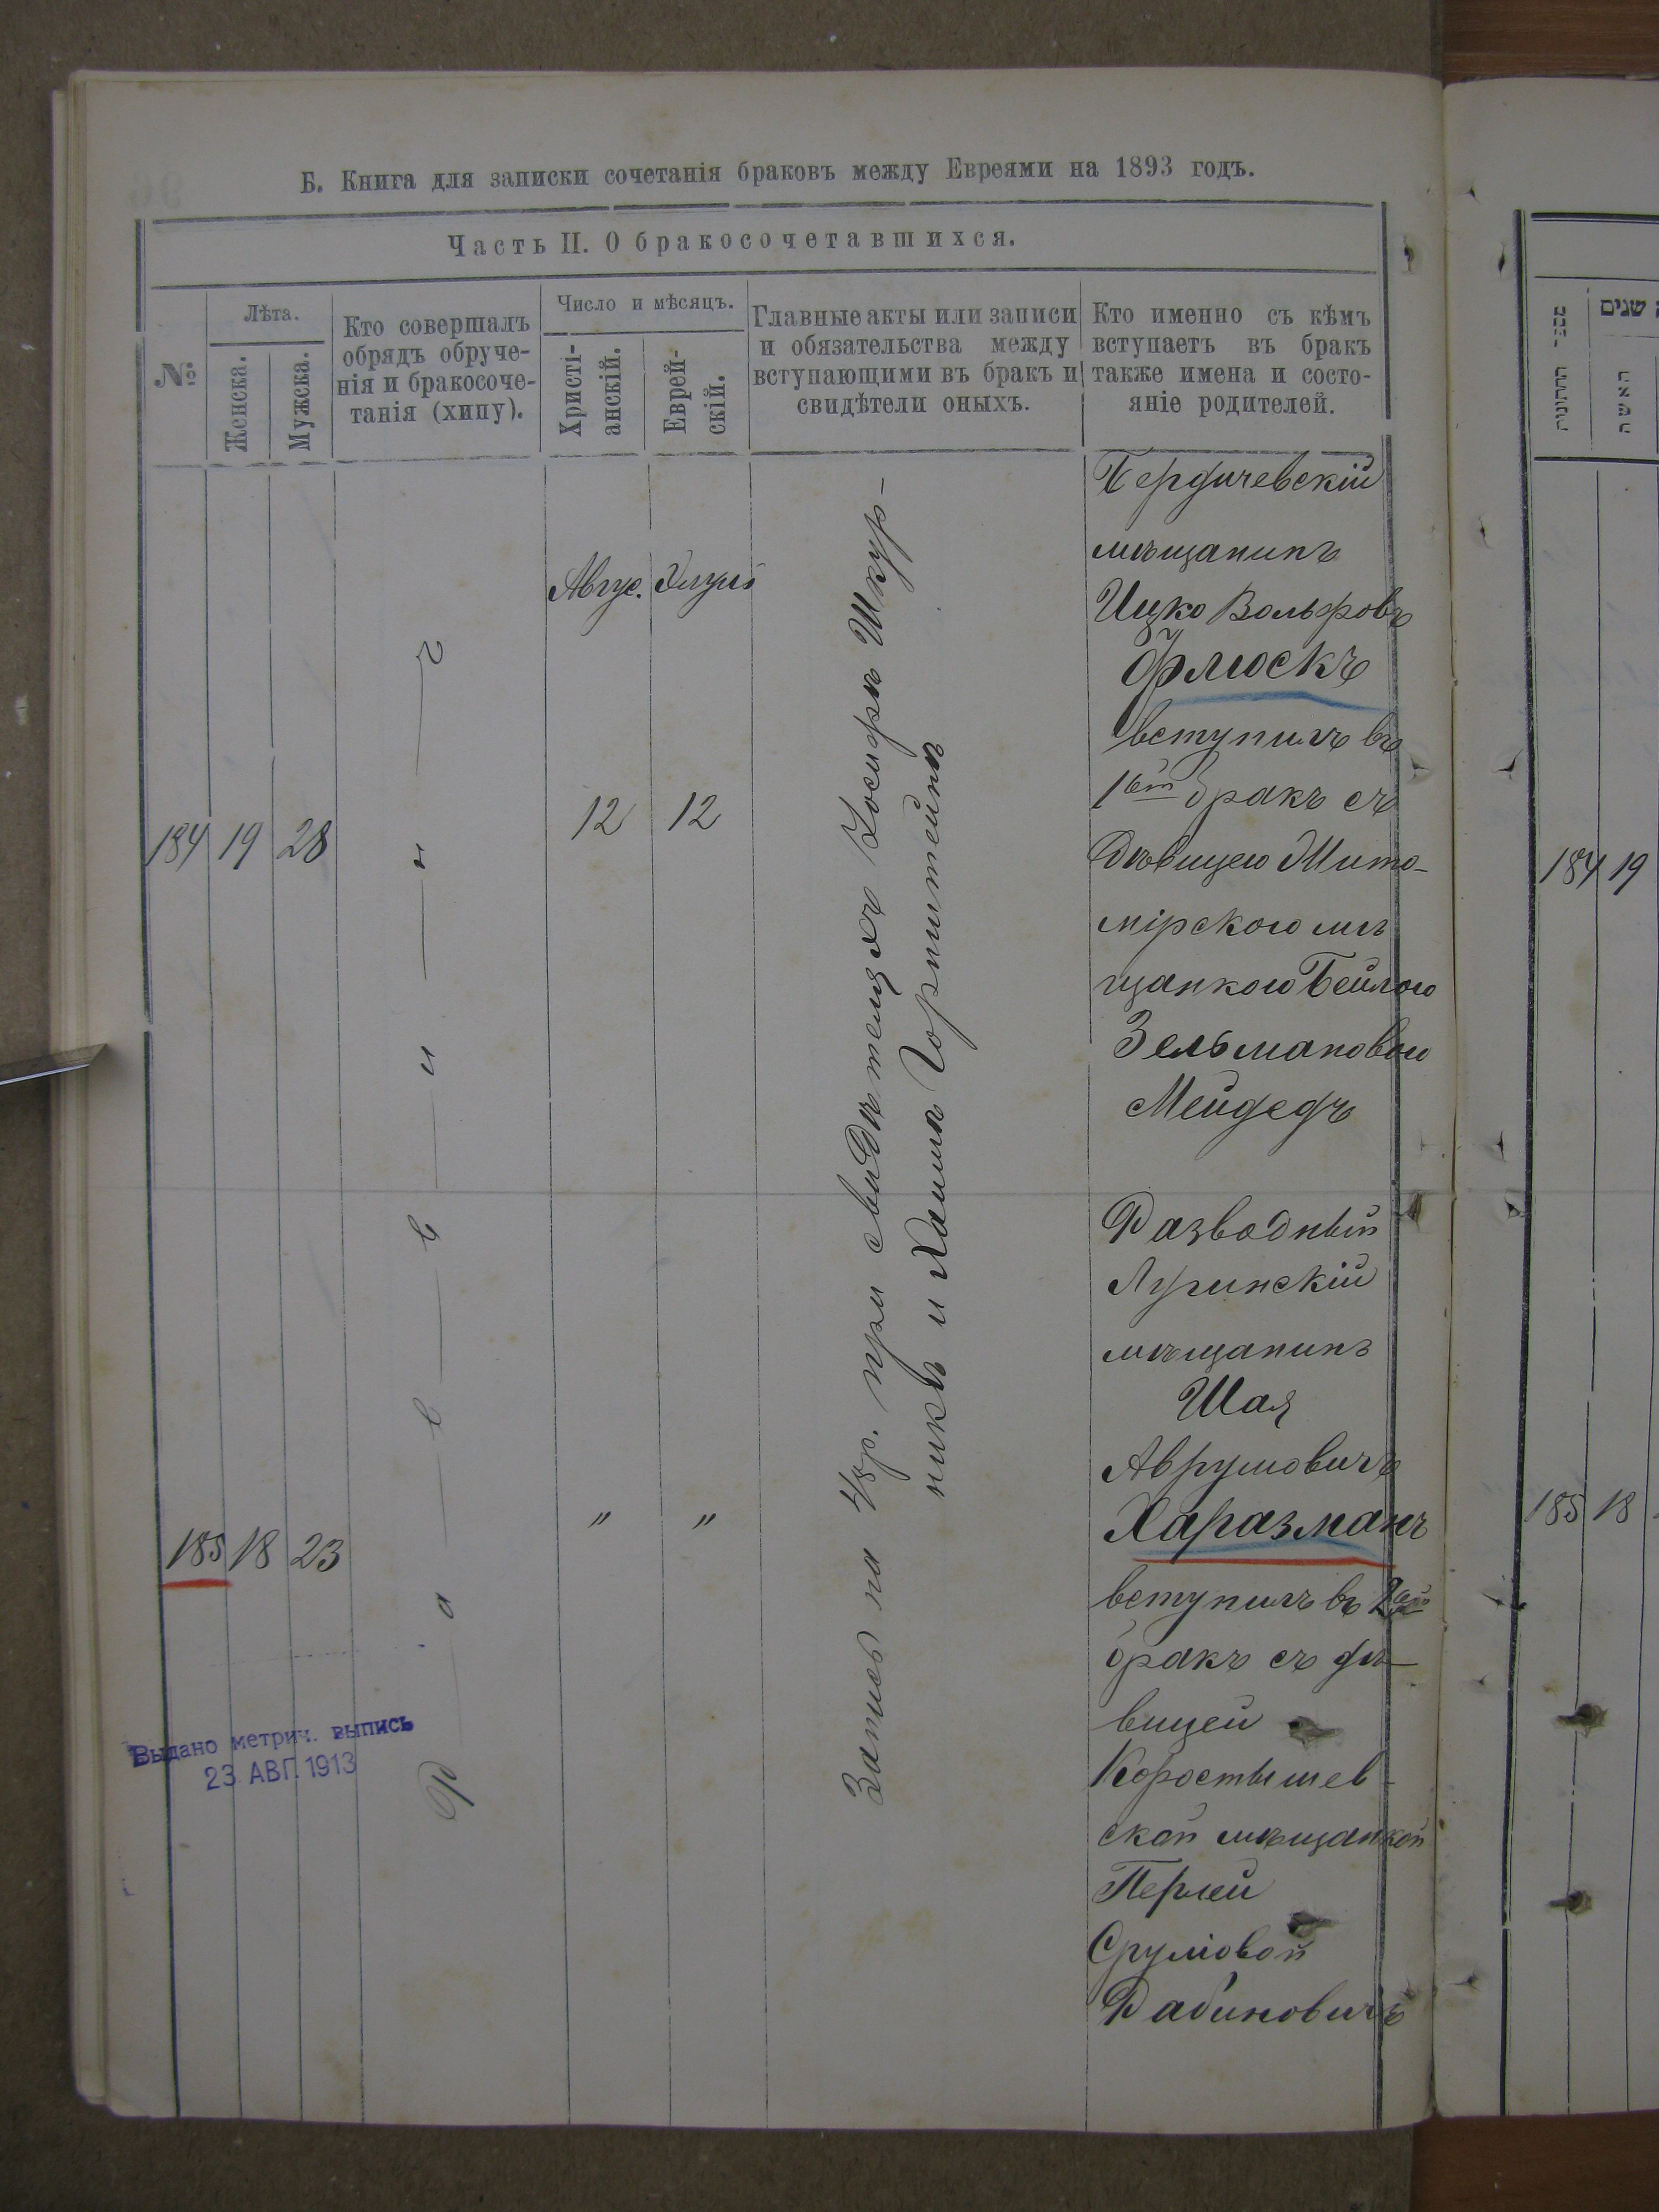 Б. Книга для записки сочетанія браковъ между Евреями на 1893 годъ.
Часть II. О бракосочетавшихся.
№
Лѣта.
Женска.
Мужска.
Кто совершалъ
обрядъ обруче-
нія и бракосоче-
танія (хипу).
Число и мѣсяцъ.
Христі-
анскій.
Еврей-
скій.
Главные акты или записи
и обязательства между
вступающими въ бракъ и
свидѣтели оныхъ.
Кто именно съ кѣмъ
вступаетъ въ бракъ
также имена и состо-
яніе родителей.
Авгус. Элулъ
184 19 28
12 12
Раввинъ
Запись на 48р. при свидѣтеляхъ Іосифѣ Шкур-
никѣ и Хаимѣ Горнштейнѣ
Бердичевскій
мѣщанинъ
Ицко Вольфовъ
Флюскъ
вступилъ въ
1ый бракъ съ
дѣвицею Жито-
мірскою мѣ
щанкою Бейлою
Зельмановою
Мейдедъ
185 18 23
" "
Разводный
Лугинскій
мѣщанинъ
Шая
Аврумовичъ
Харазманъ
вступилъ въ 2ой
бракъ съ дѣ-
вицей
Коростышев-
ской мѣщанкой
Перлей
Срулiовой
Рабиновичъ
Выдано метрич. выпись
23 АВГ. 1913
מספר החתונות
שנים
האשה
184 19
185 18